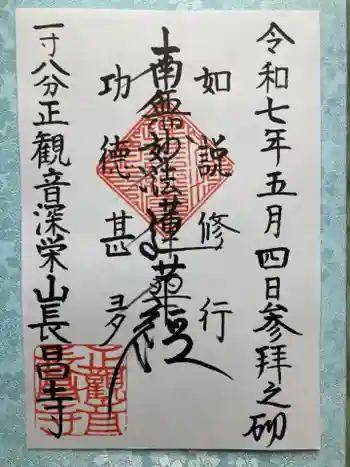 令和七年五月四日参拝之砌
如説修行
南無妙法蓮華経
功徳甚多
一寸八分正観音深栄山長昌寺